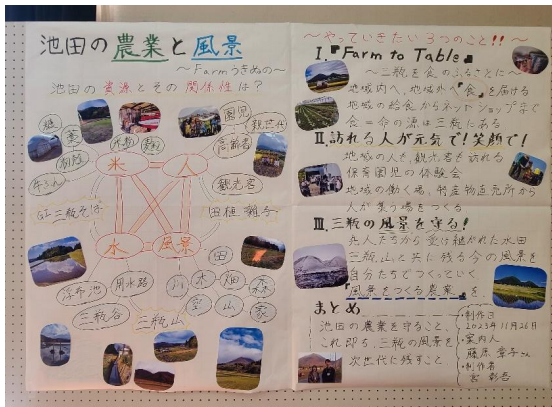 池田の農業と風景
〜Farmうきぬの〜
池田の資源とその関係性は?
園児
親世代
高齢者
米
人
観光客
GI三瓶そば
田植囃子
水
風景
浮布池
用水路
三瓶谷
三瓶山
田
川
木
畑
森
空
山
家
〜やっていきたい3つのこと!!〜
I.『Farm to Table』
〜三瓶を食のふるさとに〜
地域内へ、地域外へ『食』を届ける
地域の給食からネットショップまで
食=命の源は三瓶にある
II.訪れる人が元気で!笑顔で!
地域の人も、観光客も訪れる
保育園児の体験会
地域の働く場、特産物直売所から
人が集う場をつくる
III.三瓶の風景を守る!
先人たちから受け継がれた水田
三瓶山と共に残る今の風景を
自分たちでつくっていく
『風景をつくる農業』を
まとめ
池田の農業を守ること、
これ即ち、三瓶の風景を
次世代に残すこと
・制作日
2023年11月26日
・案内人
藤原 さん
・制作者